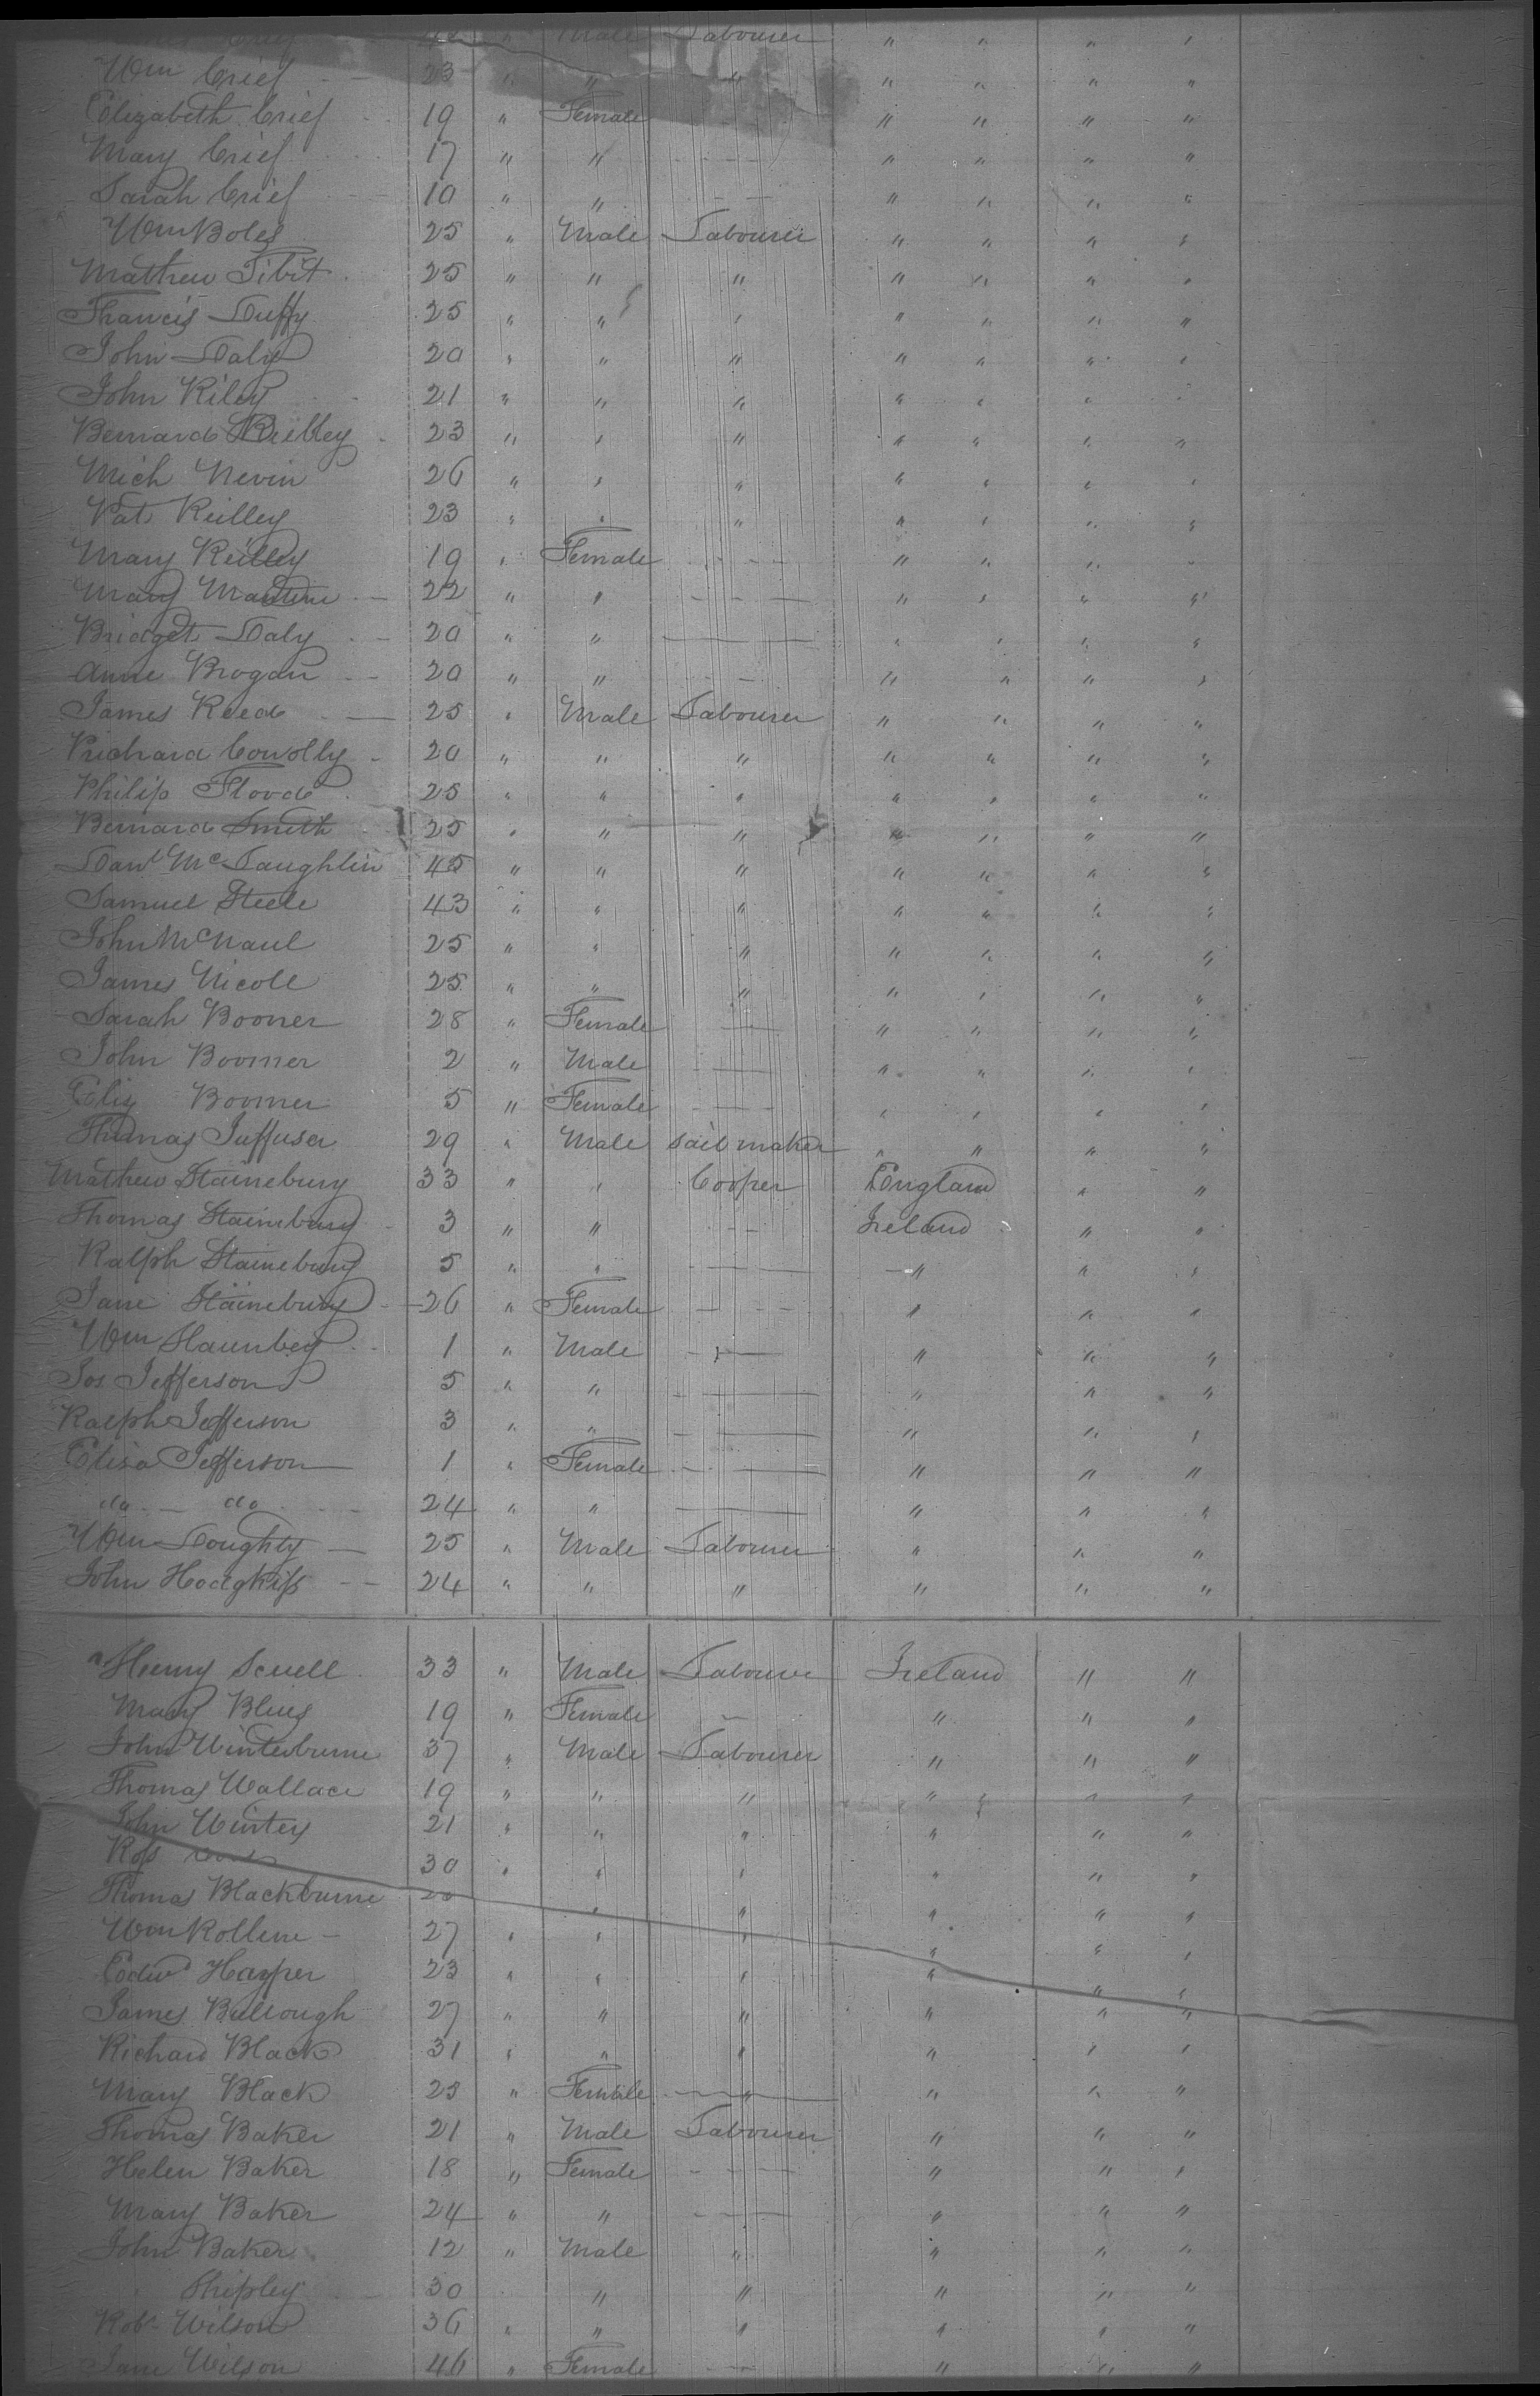 Male Labourer " " " "
Wm Crief 23 " " " " " " "
Elizabeth Crief 19 " Female " " " "
Mary Crief 17 " " " " " "
Sarah Crief 10 " " " " " "
Wm Boles 25 " Male Labourer " " " "
Mathew Tibit 25 " " " " " " "
Francis Duffy 25 " " " " " " "
John Daly 20 " " " " " " "
John Riley 21 " " " " " " "
Bernard Reilley 23 " " " " " " "
Mich Nevin 26 " " " " " " "
Pat Reilley 23 " " " " " " "
Mary Reilley 19 " Female " " " "
Mary 22 " " " " " "
Bridget Daly 20 " " " " " "
Anne Brogan 20 " " " " " "
James Reed 25 " Male Labourer " " " "
Richard Conolly 20 " " " " " " "
Philip Flood 25 " " " " " " "
Bernard Smith 25 " " " " " " "
Danl McLaughlin 45 " " " " " " "
Samuel Steele 43 " " " " " " "
John McNaul 25 " " " " " " "
James Nicoll 25 " " " " " " "
Sarah Boomer 28 " Female " " " "
John Boomer 2 " Male " " " "
Eliz Boomer 5 " Female " " " "
Thomas 29 " Male sail maker " " " "
Mathew Stainebury 33 " " Cooper England " "
Thomas Stainebury 3 " " Ireland " "
Ralph Stainebury 5 " " " " "
Jane Stainebury 26 " Female " " "
Wm 1 " Male " " "
Jos Jefferson 5 " " " " "
Ralph Jefferson 3 " " " " "
Eliza Jefferson 1 " Female " " "
do do 24 " " " " "
Wm Doughty 25 " Male Labourer " " "
John Hodgkiss 24 " " " " " "
Henry 33 " Male Labourer Ireland " "
Mary 19 " Female " " "
John Winterburne 37 " Male Labourer " " "
Thomas Wallace 19 " " " " " " "
John 21 " " " " " "
Ross 30 " " " " " "
Thomas Blackburne " " " " "
Wm Rollene 27 " " " " " "
Edwd Harper 23 " " " " " "
James Bullough 27 " " " " " "
Richard Black 31 " " " " " "
Mary Black 25 " Female " " " "
Thomas Baker 21 " Male Labourer " " "
Helen Baker 18 " Female " " "
Mary Baker 24 " " " " "
John Baker 12 " Male " " " "
Shipley 30 " " " " "
Robt Wilson 36 " " " " " "
Jane Wilson 46 " Female " " "